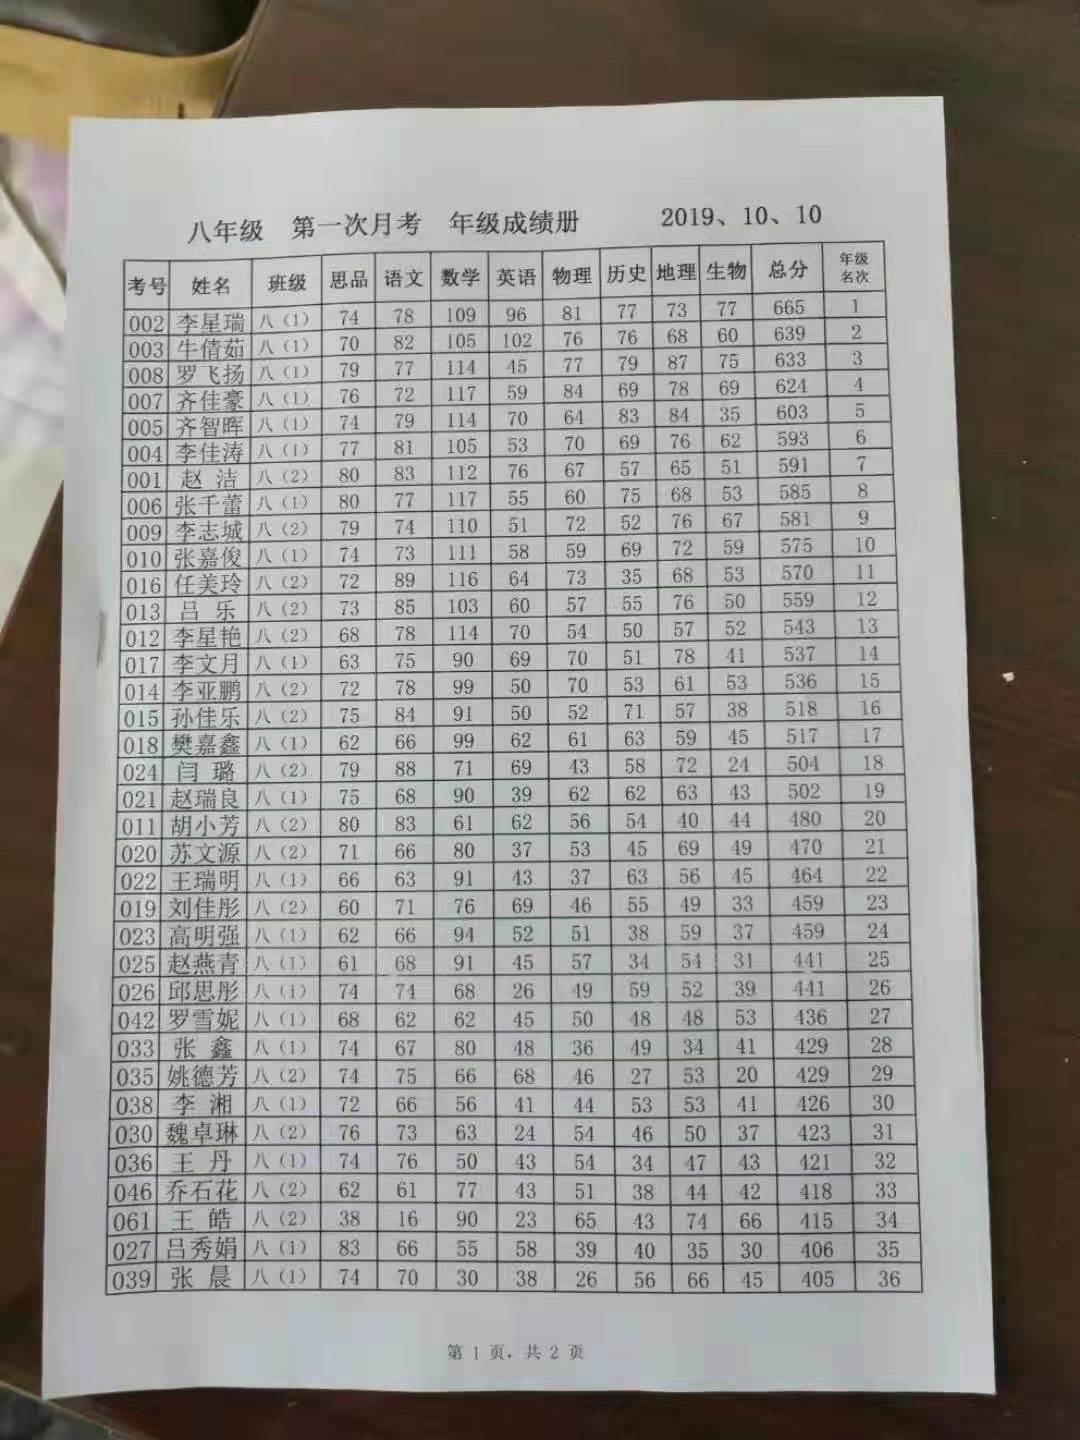 八年级 第一次月考 年级成绩册 2019、10、10
考号 姓名 班级 思品 语文 数学 英语 物理 历史 地理 生物 总分 年级名次
002 李星瑞 八（1） 74 78 109 96 81 77 73 77 665 1
003 牛倩茹 八（1） 70 82 105 102 76 76 68 60 639 2
008 罗飞扬 八（1） 79 77 114 45 77 79 87 75 633 3
007 齐佳豪 八（1） 76 72 117 59 84 69 78 69 624 4
005 齐智晖 八（1） 74 79 114 70 64 83 84 35 603 5
004 李佳涛 八（1） 77 81 105 53 70 69 76 62 593 6
001 赵 洁 八（2） 80 83 112 76 67 57 65 51 591 7
006 张千蕾 八（1） 80 77 117 55 60 75 68 53 585 8
009 李志城 八（2） 79 74 110 51 72 52 76 67 581 9
010 张嘉俊 八（1） 74 73 111 58 59 69 72 59 575 10
016 任美玲 八（2） 72 89 116 64 73 35 68 53 570 11
013 吕 乐 八（2） 73 85 103 60 57 55 76 50 559 12
012 李星艳 八（2） 68 78 114 70 54 50 57 52 543 13
017 李文月 八（1） 63 75 90 69 70 51 78 41 537 14
014 李亚鹏 八（2） 72 78 99 50 70 53 61 53 536 15
015 孙佳乐 八（2） 75 84 91 50 52 71 57 38 518 16
018 樊嘉鑫 八（1） 62 66 99 62 61 63 59 45 517 17
024 闫 璐 八（2） 79 88 71 69 43 58 72 24 504 18
021 赵瑞良 八（1） 75 68 90 39 62 62 63 43 502 19
011 胡小芳 八（2） 80 83 61 62 56 54 40 44 480 20
020 苏文源 八（2） 71 66 80 37 53 45 69 49 470 21
022 王瑞明 八（1） 66 63 91 43 37 63 56 45 464 22
019 刘佳彤 八（2） 60 71 76 69 46 55 49 33 459 23
023 高明强 八（1） 62 66 94 52 51 38 59 37 459 24
025 赵燕青 八（1） 61 68 91 45 57 34 54 31 441 25
026 邱思彤 八（1） 74 74 68 26 49 59 52 39 441 26
042 罗雪妮 八（1） 68 62 62 45 50 48 48 53 436 27
033 张 鑫 八（1） 74 67 80 48 36 49 34 41 429 28
035 姚德芳 八（2） 74 75 66 68 46 27 53 20 429 29
038 李 湘 八（1） 72 66 56 41 44 53 53 41 426 30
030 魏卓琳 八（2） 76 73 63 24 54 46 50 37 423 31
036 王 丹 八（1） 74 76 50 43 54 34 47 43 421 32
046 乔石花 八（2） 62 61 77 43 51 38 44 42 418 33
061 王 皓 八（2） 38 16 90 23 65 43 74 66 415 34
027 吕秀娟 八（1） 83 66 55 58 39 40 35 30 406 35
039 张 晨 八（1） 74 70 30 38 26 56 66 45 405 36
第 1 页，共 2 页